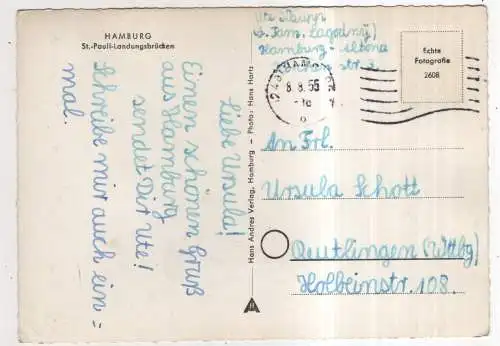 HAMBURG
St.-Pauli-Landungsbrücken
Liebe Ursula!
Einen schönen Gruß
aus Hamburg
sendet Dir Ute!
Schreibe mir auch ein
mal.
Hans Andres Verlag, Hamburg - Photo: Hans Hartz
Ute
Hamburg-Altona
str.
HAMB
8.8.55
Echte
Fotografie
2608
An Frl.
Ursula Schott
Reutlingen (Wttbg)
Holbeinstr. 108.